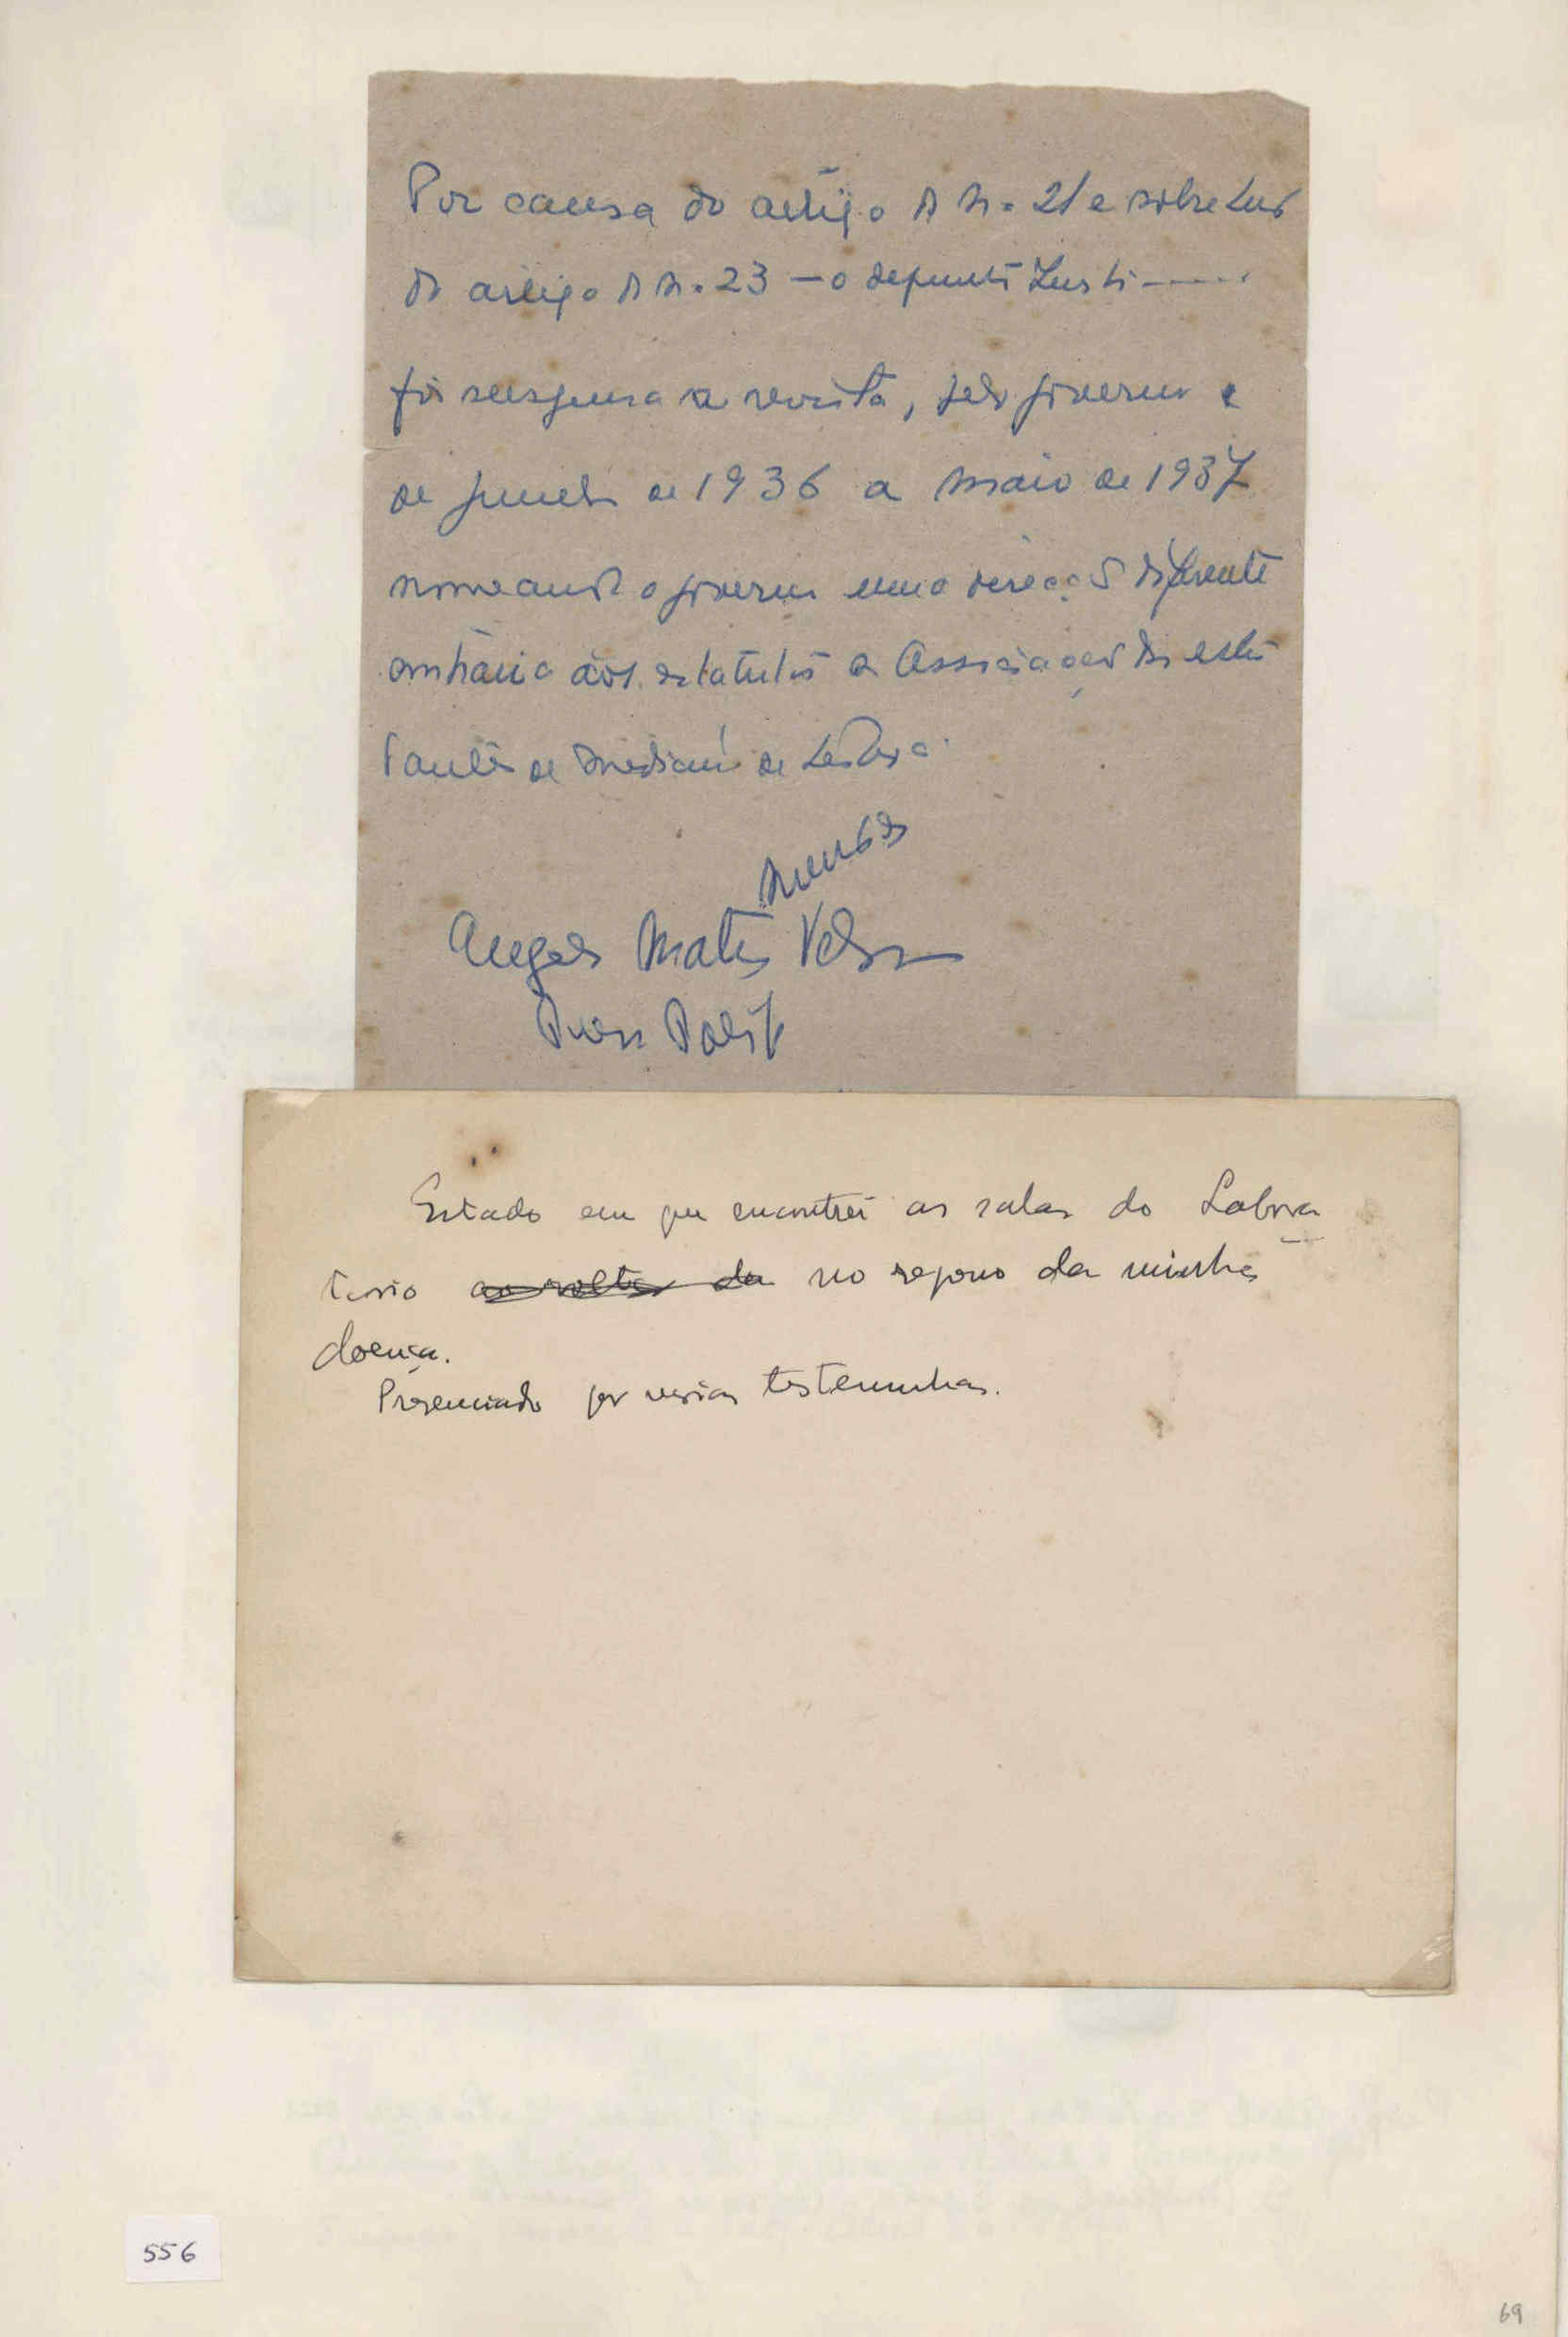 Por causa do artigo do n.º 21 e sobretudo
do artigo do n.º 23 — o defunto
foi suspensa a revista, pelo governo e
de Junho de 1936 a maio de 1937
nomeando o governo uma direcção diferente
contrária aos estatutos da Associação dos estu
dantes de Medicina de Lisboa.
Nunes
Matos
Estado em que encontrei as salas do Labora
torio ao voltar da no regresso da minha
doença.
Presenciado por varias testemunhas.
556
69